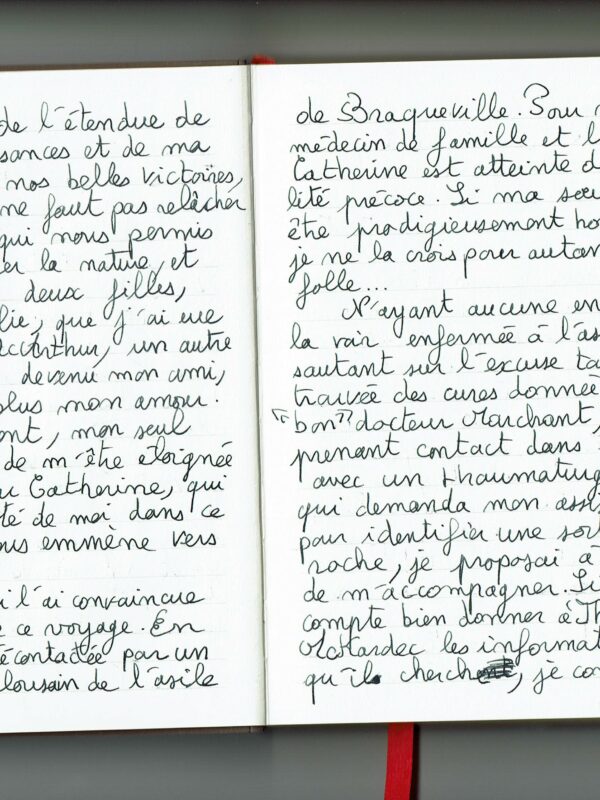 de l'étendue de
sances et de ma
nos belles victoires,
ne faut pas relâcher
qui nous permis
er la nature, et
deux filles,
lie, que j'ai eue
cArthur, un autre
devenu mon ami,
plus mon amour.
ont, mon seul
de m'être éloignée
Catherine, qui
té de moi dans ce
ous emmène vers
i l'ai convaincue
ce voyage. En
écontactée par un
lousain de l'asile
de Braqueville. Pour
médecin de famille et l
Catherine est atteinte d
lité précoce. Si ma soeu
être prodigieusement ho
je ne la crois pour autan
folle...
N'ayant aucune en
la voir enfermée à l'as
sautant sur l'excuse to
trouvée des cures donnée
"bon" docteur Marchant,
prenant contact dans
avec un thaumaturg
qui demanda mon assi
pour identifier une sor
roche, je proposai à
de m'accompagner. Si
compte bien donner à Th
les informat
qu'il cherch, je con